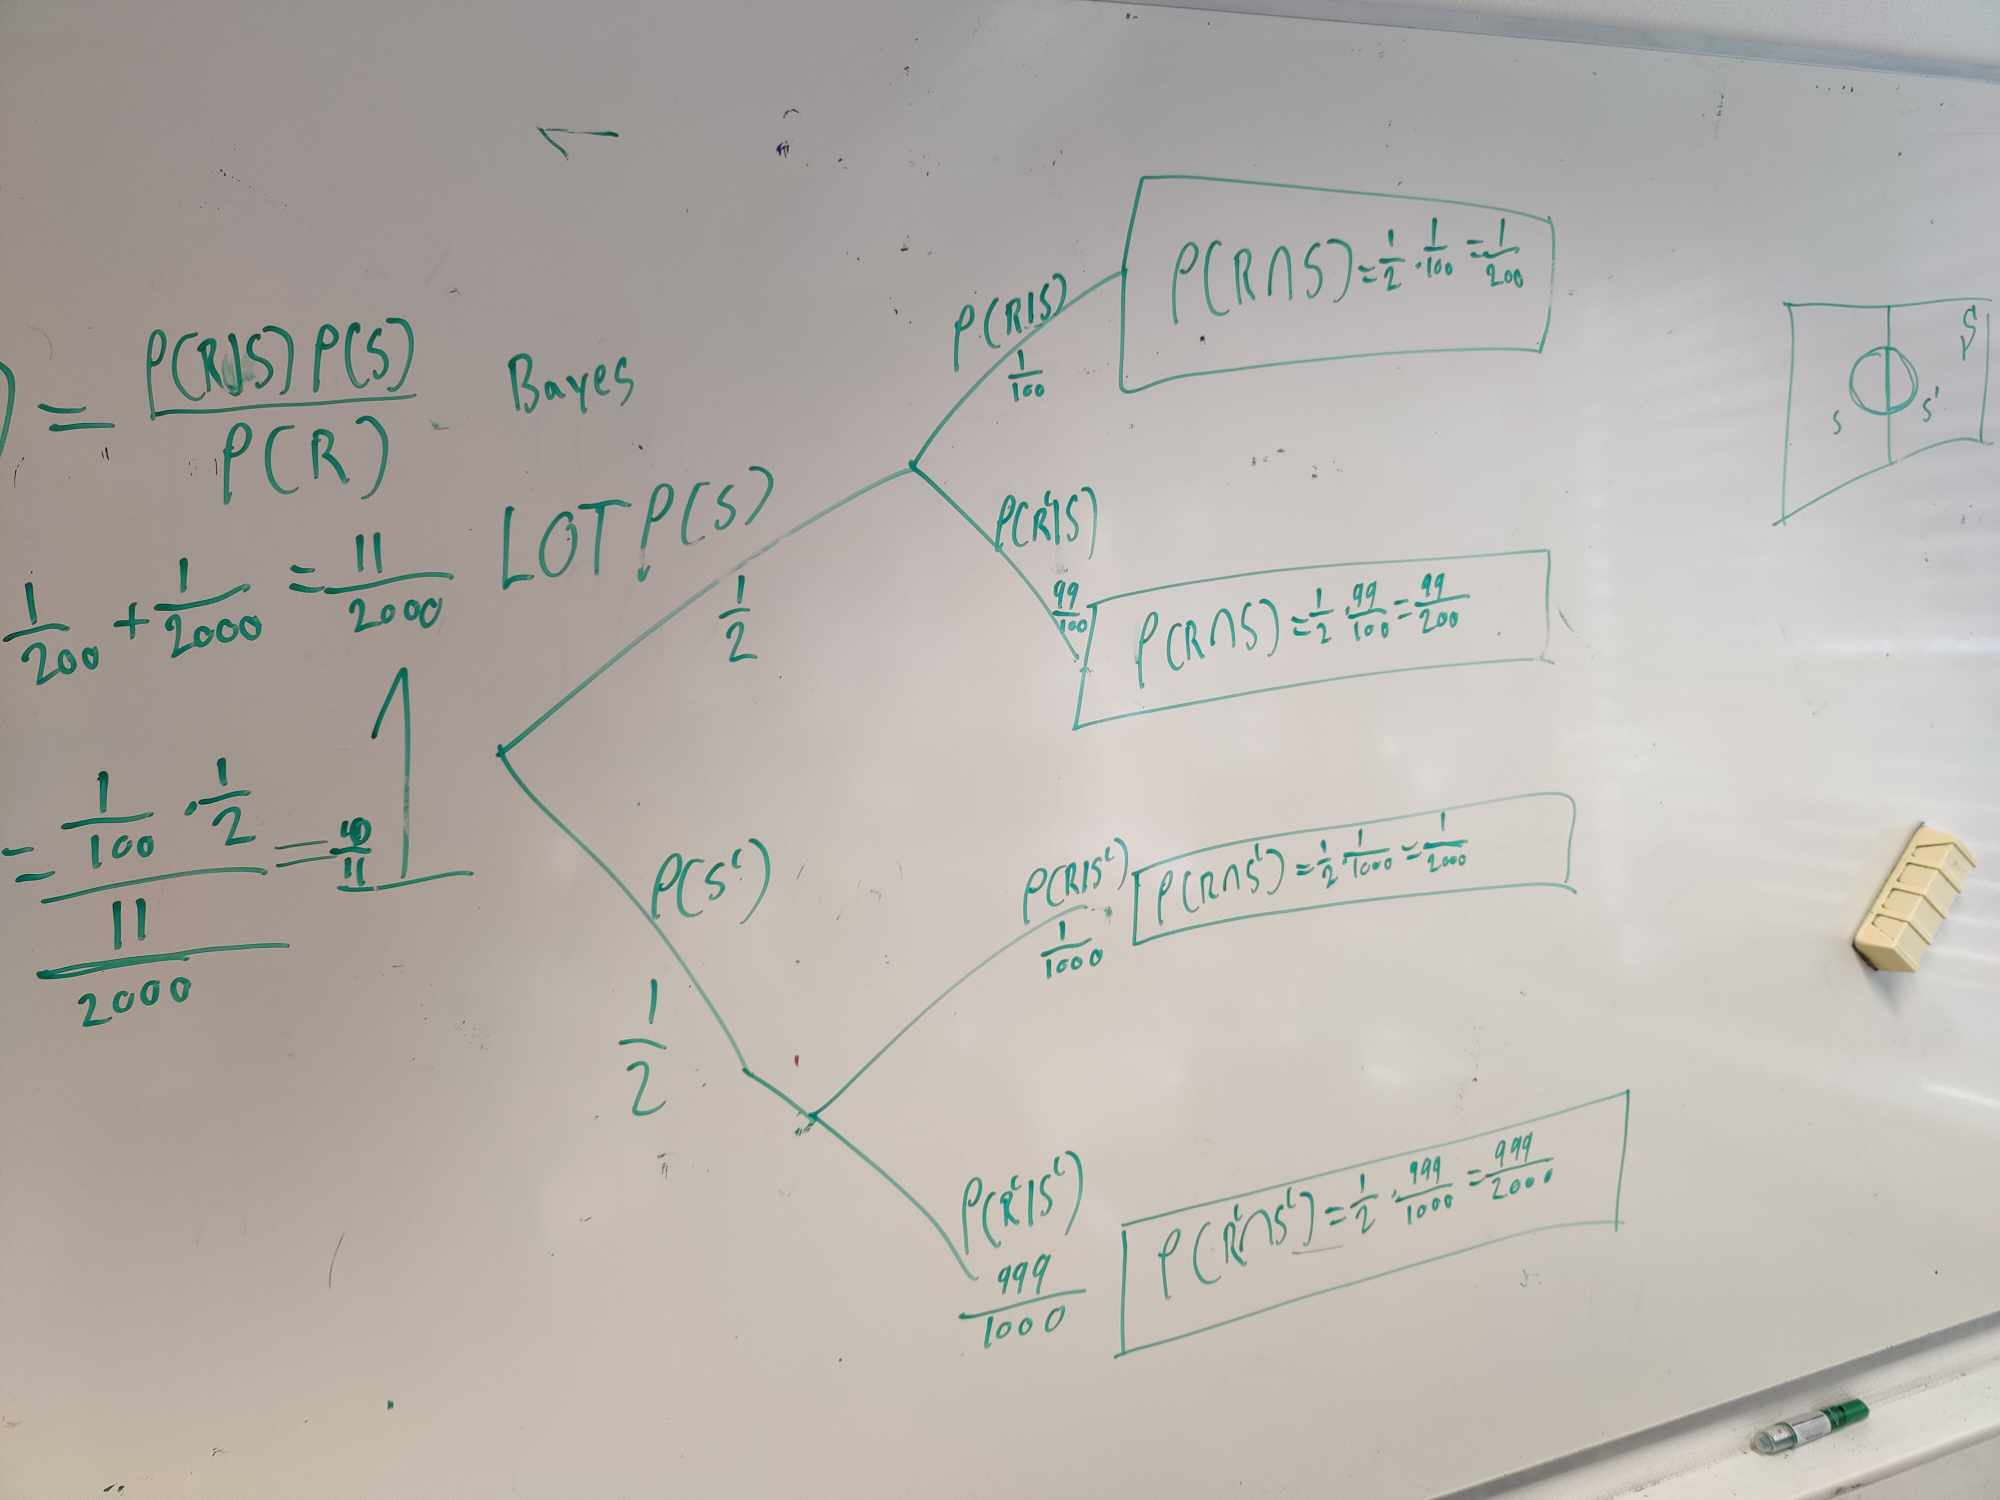 ) = P(R|S) P(S) / P(R)
Bayes
1/200 + 1/2000 = 11/2000
LOTP
= (1/100 · 1/2) / (11/2000) = 10/11
P(S)
1/2
P(S^c)
1/2
P(R|S)
1/100
P(R∩S) = 1/2 · 1/100 = 1/200
P(R^c|S)
99/100
P(R∩S) = 1/2 · 99/100 = 99/200
P(R|S^c)
1/1000
P(R∩S^c) = 1/2 · 1/1000 = 1/2000
P(R^c|S^c)
999/1000
P(R^c∩S^c) = 1/2 · 999/1000 = 999/2000
S
S'